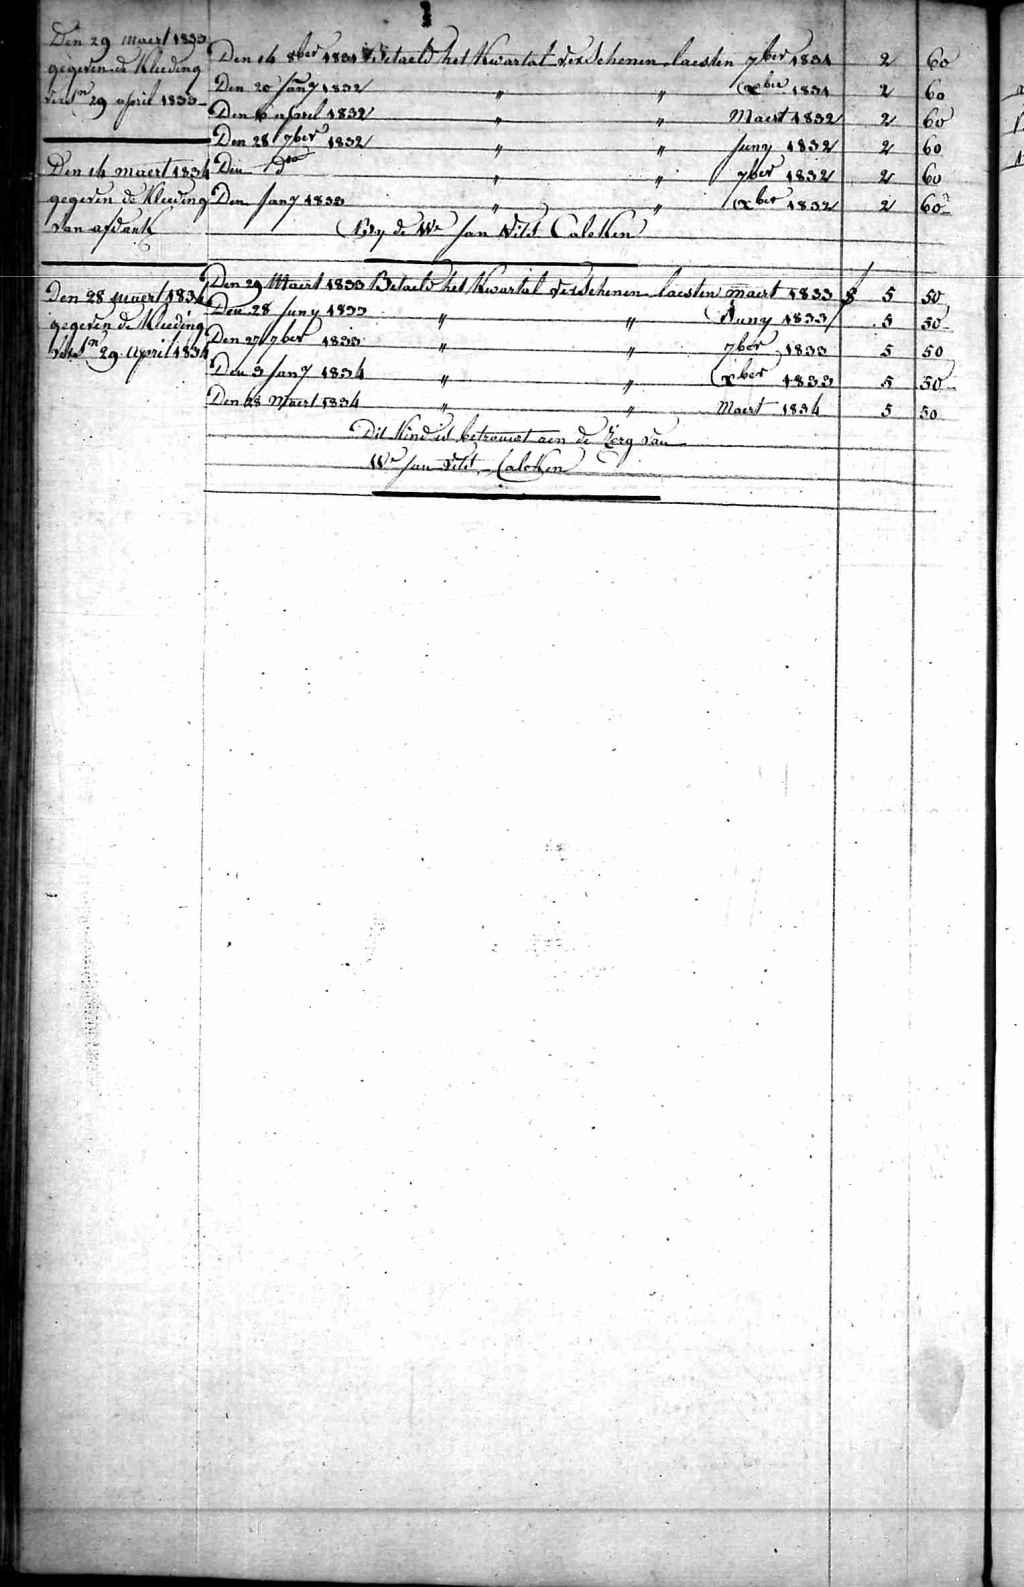 Den 29 maert 1833
gegeven de Kleeding
verst.n 29 april 1833
Den 14 maert 1834
gegeven de Kleeding
van afdank
Den 28 maert 1834
gegeven de Kleeding
verst.n 29 April 1834
Den 14 8ber 1831 Betaeld het Kwartal verschenen laesten 7ber 1831 2 60
Den 20 Jany 1832 " " xber 1831 2 60
Den 6 april 1832 " " Maert 1832 2 60
Den 28 7ber 1832 " " Juny 1832 2 60
Den do " " 7ber 1832 2 60
Den Jany 1833 " " xber 1832 2 60
By de We Jan Calcken
Den 29 Maert 1833 Betaeld het Kwartal verschenen laesten maert 1833 5 50
Den 28 Juny 1833 " " Juny 1833 5 50
Den 27 7ber 1833 " " 7ber 1833 5 50
Den 3 Jany 1834 " " xber 1833 5 50
Den 28 Maert 1834 " " Maert 1834 5 50
Dit Kind is betrouwt aen de Zorg van
We Jan Calcken